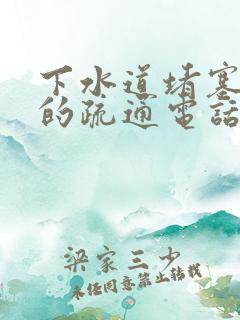 下水道堵塞
的疏通電話
梁家三少
未经同意禁止转载